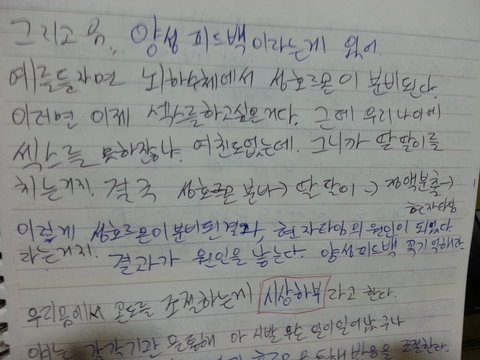 그리고 음.. 양성피드백이라는게 있어.
예를들자면 뇌하수체에서 성호르몬이 분비된다.
이러면 이제 섹스를하고싶은거다. 근데 우리나이에
섹스를 못하잖냐. 여친도없는데. 그니까 딸딸이를
치는거지. 결국 성호르몬 분비→딸딸이→정액분출→
현자타임
이렇게 성호르몬이분비된결과, 현자타임의 원인이 되었다
라는거지. 결과가 원인을 낳는다. 양성피드백 꼭기억해라.
우리몸에서 온도를 조절하는게 시상하부 라고 한다.
각각기관 온통해 아 시발 무슨 일이일어났구나
통해 반응을 조절한다.